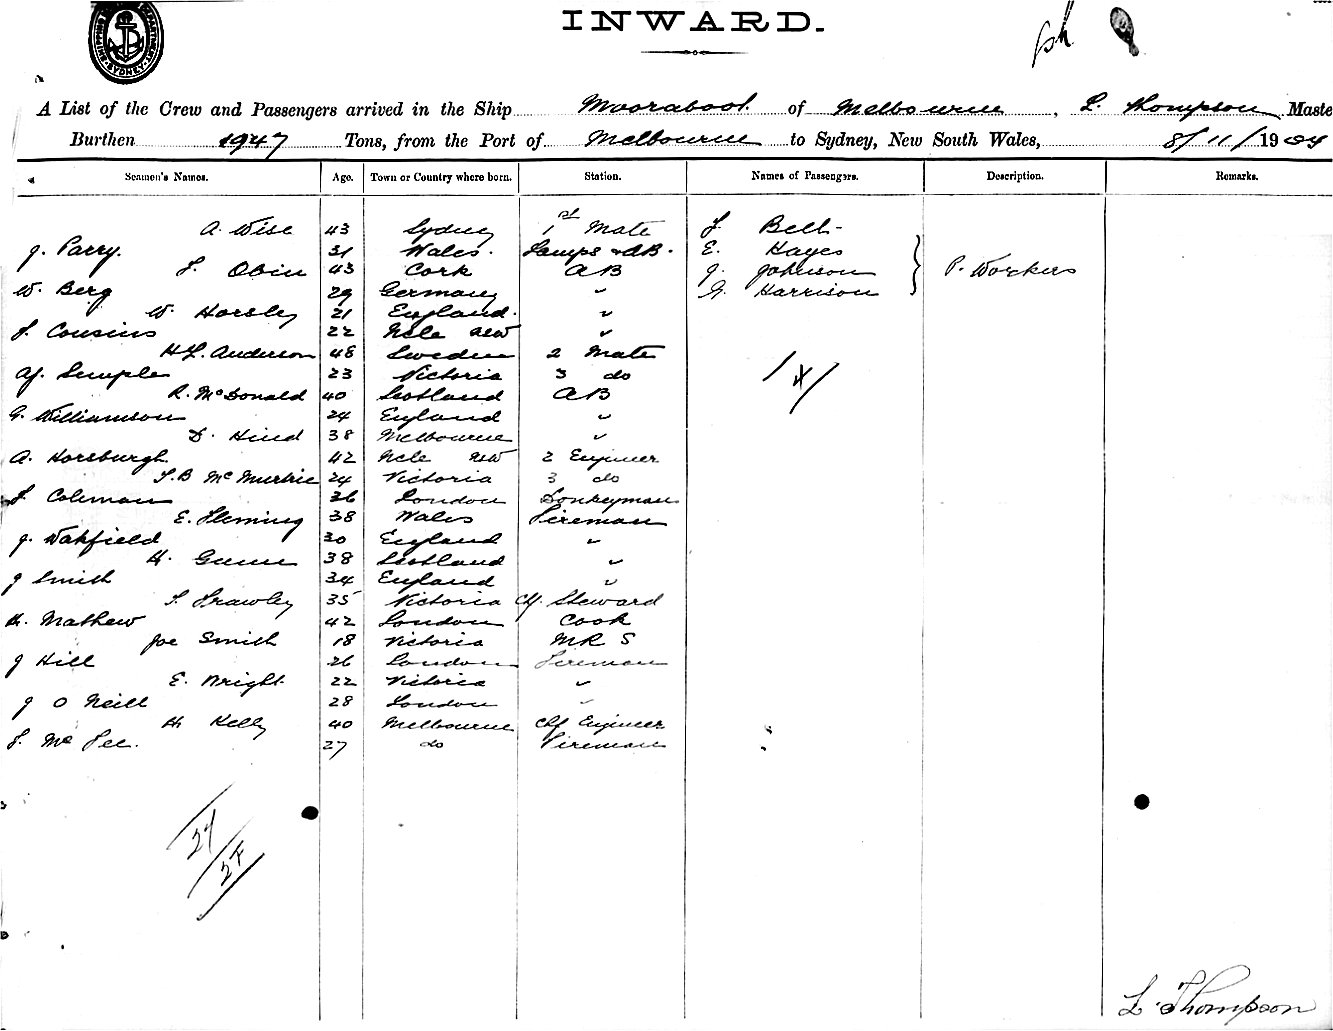 INWARD.
A List of the Crew and Passengers arrived in the Ship Moorabool of Melbourne, L. Thompson, Maste
Burthen 1947 Tons, from the Port of Melbourne to Sydney, New South Wales, 8/11/1904
Seamen's Names. Age. Town or Country where born. Station. Names of Passengers. Description. Remarks.
A. Wise 43 Sydney 1st Mate J. Bell
J. Parry. 31 Wales. Lamps & AB. E. Hayes
43 Cork AB J. Johnson P. Workers
W. Berg 29 Germany " G. Harrison
W. Horsley 21 England. "
J. Cousins 22 Ncle NSW "
H.L. Anderson 48 Sweden 2 Mate
Af. Semple 23 Victoria 3 do
R. McDonald 40 Scotland AB
G. Williamson 24 England "
D. Hind 38 Melbourne "
A. Horsburgh 42 Ncle NSW 2 Engineer
J.B McMurtrie 24 Victoria 3 do
J. Coleman 36 London Donkeyman
E. Fleming 38 Wales Fireman
J. Wakfield 30 England "
H. Gunn 38 Scotland "
J Smith 34 England "
S. Frawley 35 Victoria Chf. Steward
H. Mathew 42 London Cook
Joe Smith 18 Victoria MR S
J Hill 26 London Fireman
E. Wright 22 Victoria "
J O Neill 28 London "
H. Kelly 40 Melbourne Chf Engineer
J. Mc Fee. 27 do Fireman
L. Thompson